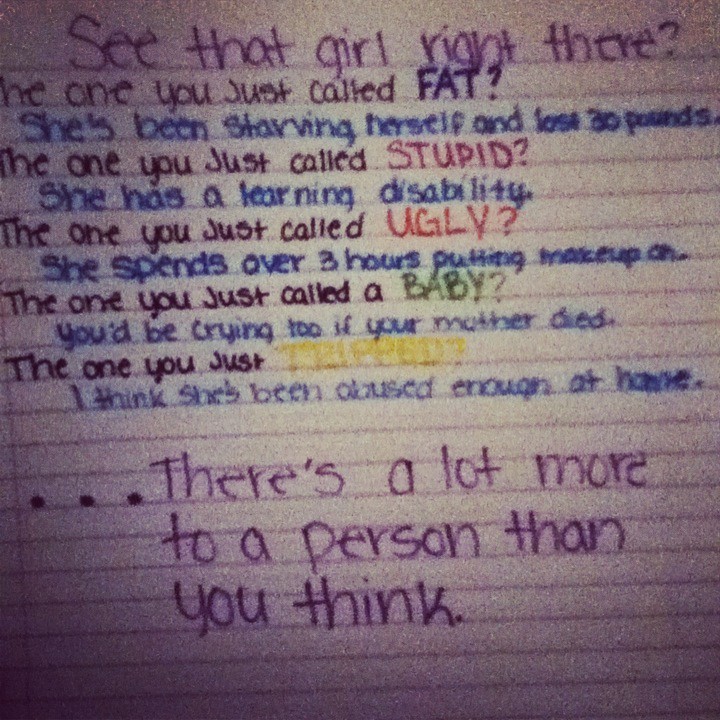 See that girl right there?
he one you Just called FAT?
She's been starving herself and lost 30 pounds.
The one you Just called STUPID?
She has a learning disability.
The one you Just called UGLY?
She spends over 3 hours putting makeup on.
The one you Just called a BABY?
You'd be crying too if your mother died.
The one you Just TRIPPED?
I think she's been abused enough at home.
...There's a lot more
to a person than
you think.